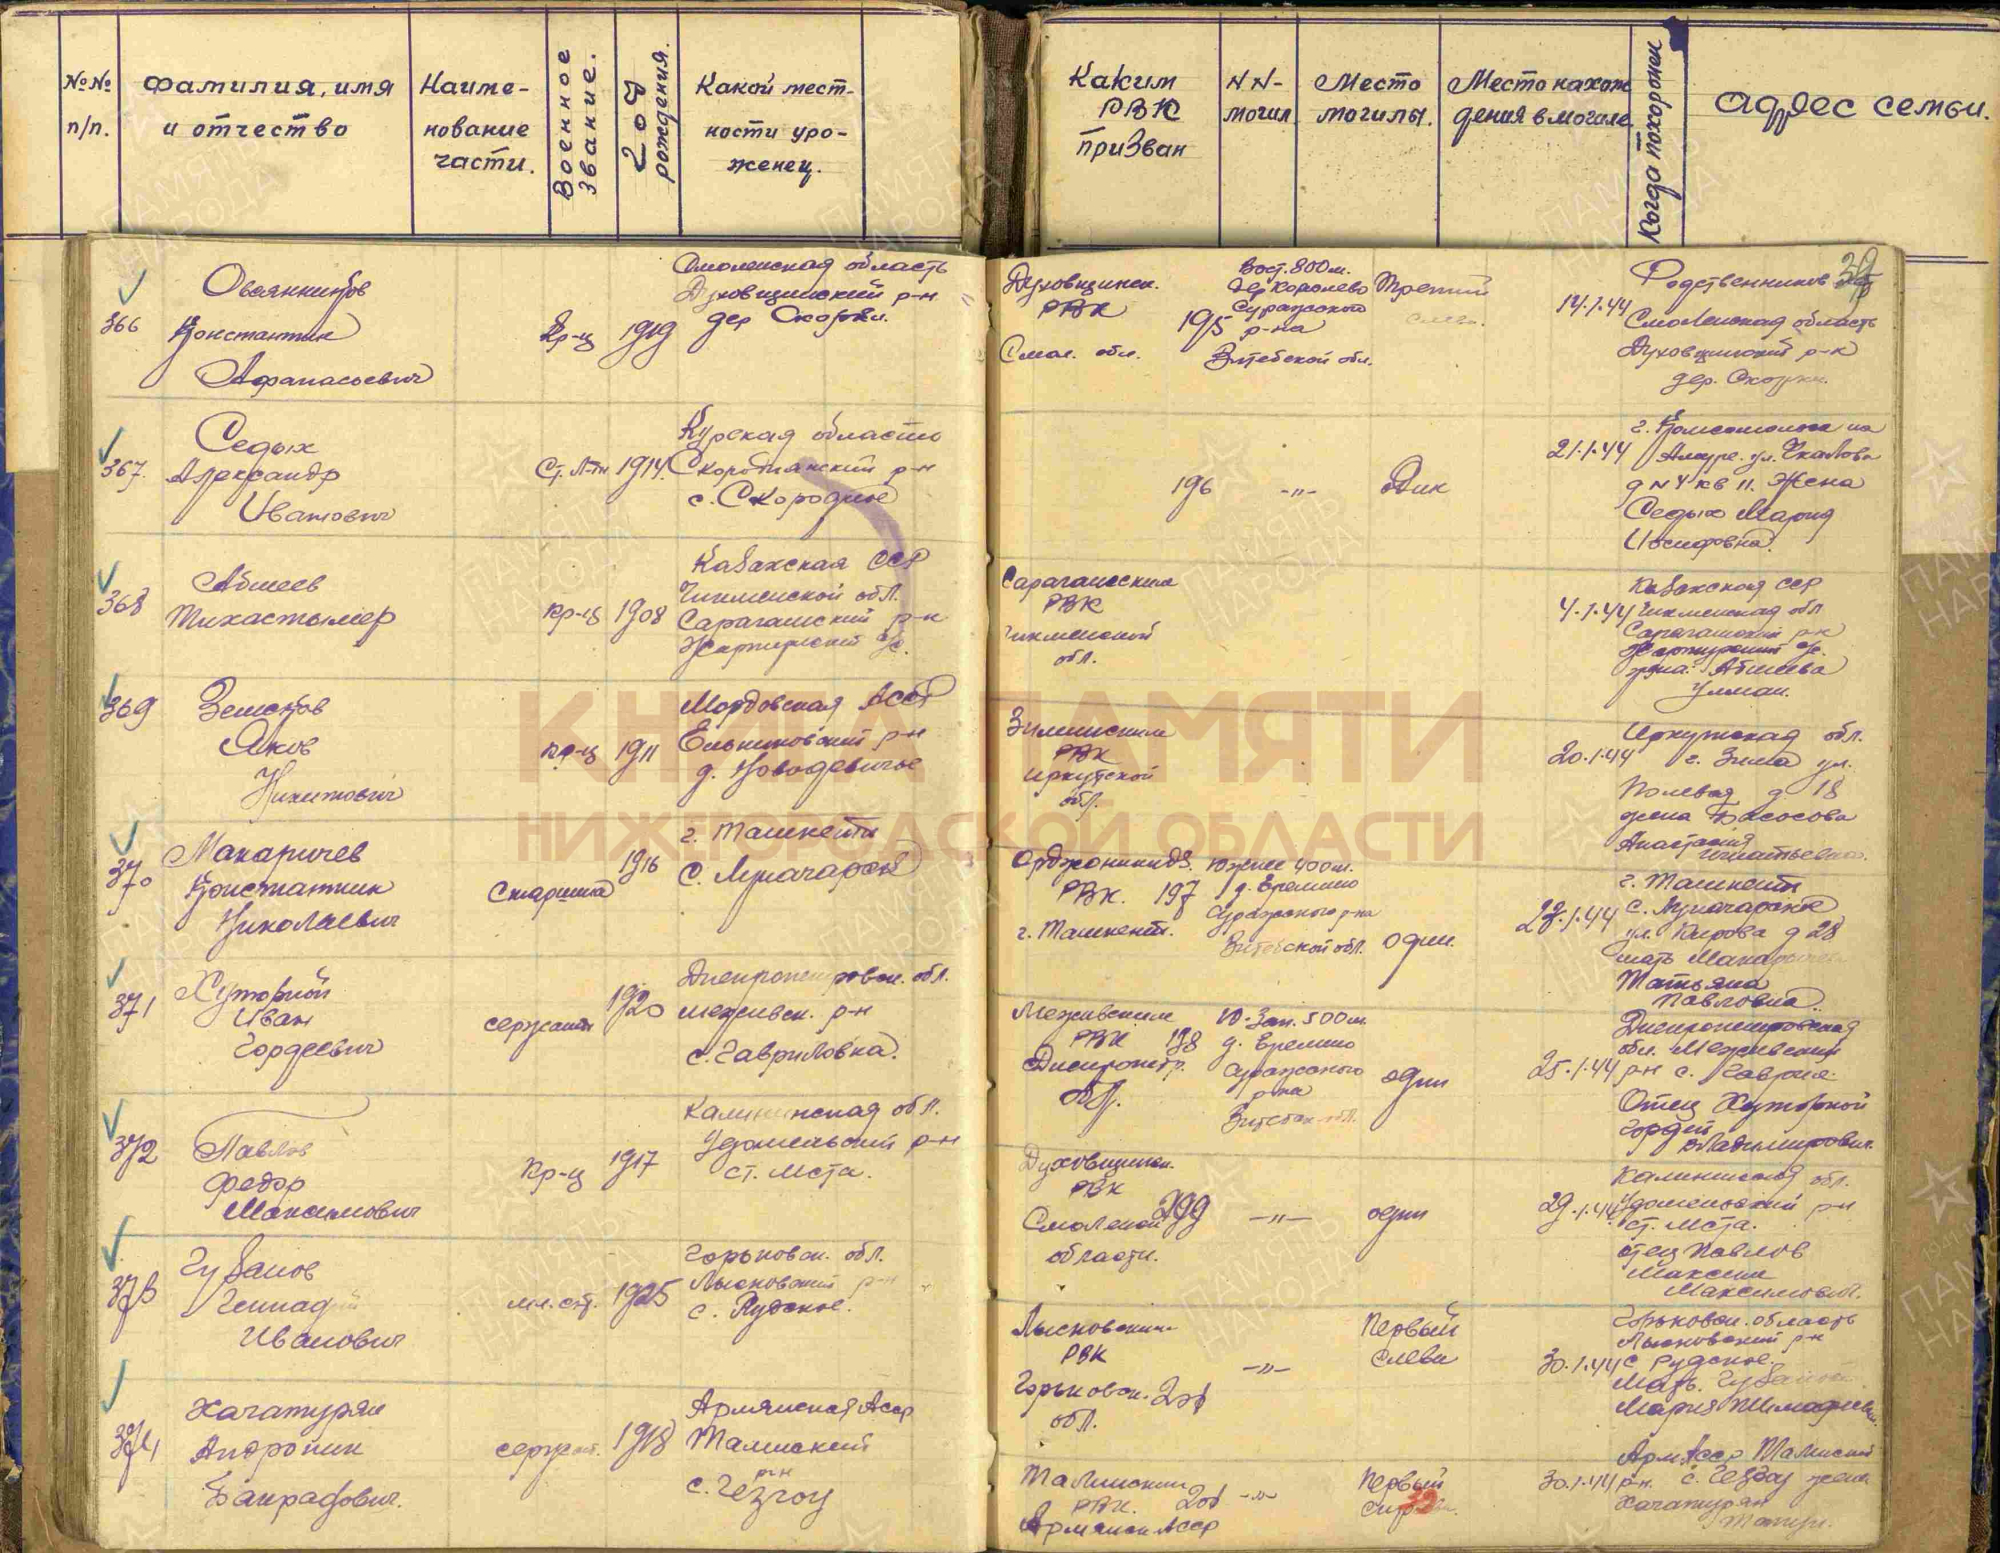 №№
п/п.
Фамилия, имя
и отчество
Наиме-
нование
части.
Военное
звание.
год
рождения.
Какой мест-
ности уро-
женец.
Каким
РВК
призван
NN-
могил
Место
могилы.
Место нахож
дения в могиле.
Когда похоронен
Адрес семьи.
366
Овсянников
Константин
Афанасьевич
Кр-ц
1919
Смоленская область
Духовщинский р-н
дер
Духовщинск.
РВК
Смол. обл.
195
Вост. 800 м.
дер Королево
Суражского
р-на
Витебской обл.
Третий
слева.
14.1.44
Родственников
Смоленская область
Духовщинский р-н
дер.
367.
Седых
Александр
Иванович
Ст. Л-тн
1914.
Курская область
Скороднянский р-н
с. Скородное
196
-"-
Один
21.1.44
г. Комсомольск на
Амуре. ул. Чкалова
д N 4 кв 11. Жена
Седых Мария
Иосифовна.
368
Абшеев
Тихастымер
кр-ц
1908
Казахская ССР
Чимкенской обл.
Сарагашский р-н
с/с.
Сарагашским
РВК
Чимкенской
обл.
4.1.44
Казахская ССР
Чимкенская обл
Сарагашский р-н
с/с.
жена: Абшеева
369
Земсков
Яков
Никитович
кр-ц
1911
Мордовская АССР
Ельниковский р-н
д. Новодевичье
Зиминским
РВК
Иркутской
обл.
20.1.44
Иркутская обл.
г. Зима ул.
Полевая д. 18
жена Басосова
Анастасия
Игнатьевна.
370
Макаричев
Константин
Николаевич
Старшина
1916
г. Ташкент
с. Луначарск
Орджоникидз.
РВК.
г. Ташкент.
197
Южнее 400 м.
д. Еремино
Суражского р-на
Витебской обл.
один.
22.1.44
г. Ташкент
с. Луначарск
ул. Кирова д 28
мать
Татьяна
Павловна.
371
Хуторной
Иван
Гордеевич
сержант
1920
Днепропетровск. обл.
Межевск. р-н
с. Гавриловка.
Межевским
РВК
Днепропетр.
обл.
198
Ю-Зап. 500 м.
д. Еремино
Суражского
р-на
Витебск обл.
один
25.1.44
Днепропетровская
обл. Межевский
р-н с.
Отец Хуторной
Гордей
Владимирович.
372
Павлов
Федор
Максимович
Кр-ц
1917
Калининская обл.
Удомельский р-н
ст. Мста.
Духовщинск.
РВК
Смоленской
области.
199
-"-
один
29.1.44
Калининская обл.
Удомельский р-н
ст. Мста.
отец Павлов
Максим
Максимович.
373
Губанов
Геннадий
Иванович
мл. с-т.
1925
Горьковск. обл.
Лысковский р-н
с. Рудское.
Лысковским
РВК
Горьковск.
обл.
201
-"-
Первый
слева
30.1.44
Горьковск. область
Лысковский р-н
с Рудское.
Мать. Губанова
Мария
374
Хачатурян
Андроник
Баградович.
сержант.
1918
Армянская АССР
Талинский
р-н
с. Гезгоу
Талинским
РВК.
Армянск АССР
201
-"-
Первый
30.1.44
Арм АССР Талинский
р-н. с. жена
Хачатурян
32
КНИГА ПАМЯТИ
НИЖЕГОРОДСКОЙ ОБЛАСТИ
ПАМЯТЬ
НАРОДА